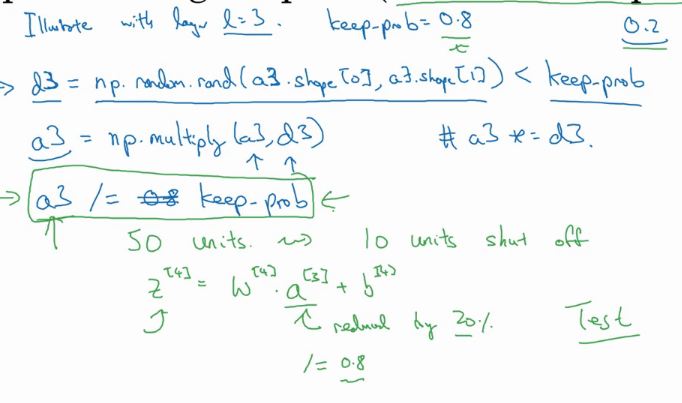 Illustrate with layer l=3. keep-prob= 0.8 0.2
→ d3 = np.random.rand(a3.shape[0], a3.shape[1]) < keep-prob
a3 = np.multiply(a3, d3) # a3 *= d3.
→ a3 /= 0.8 keep-prob ←
50 units. ⇝ 10 units shut off
z^[4] = W^[4] · a^[3] + b^[4]
reduced by 20%. Test
/= 0.8